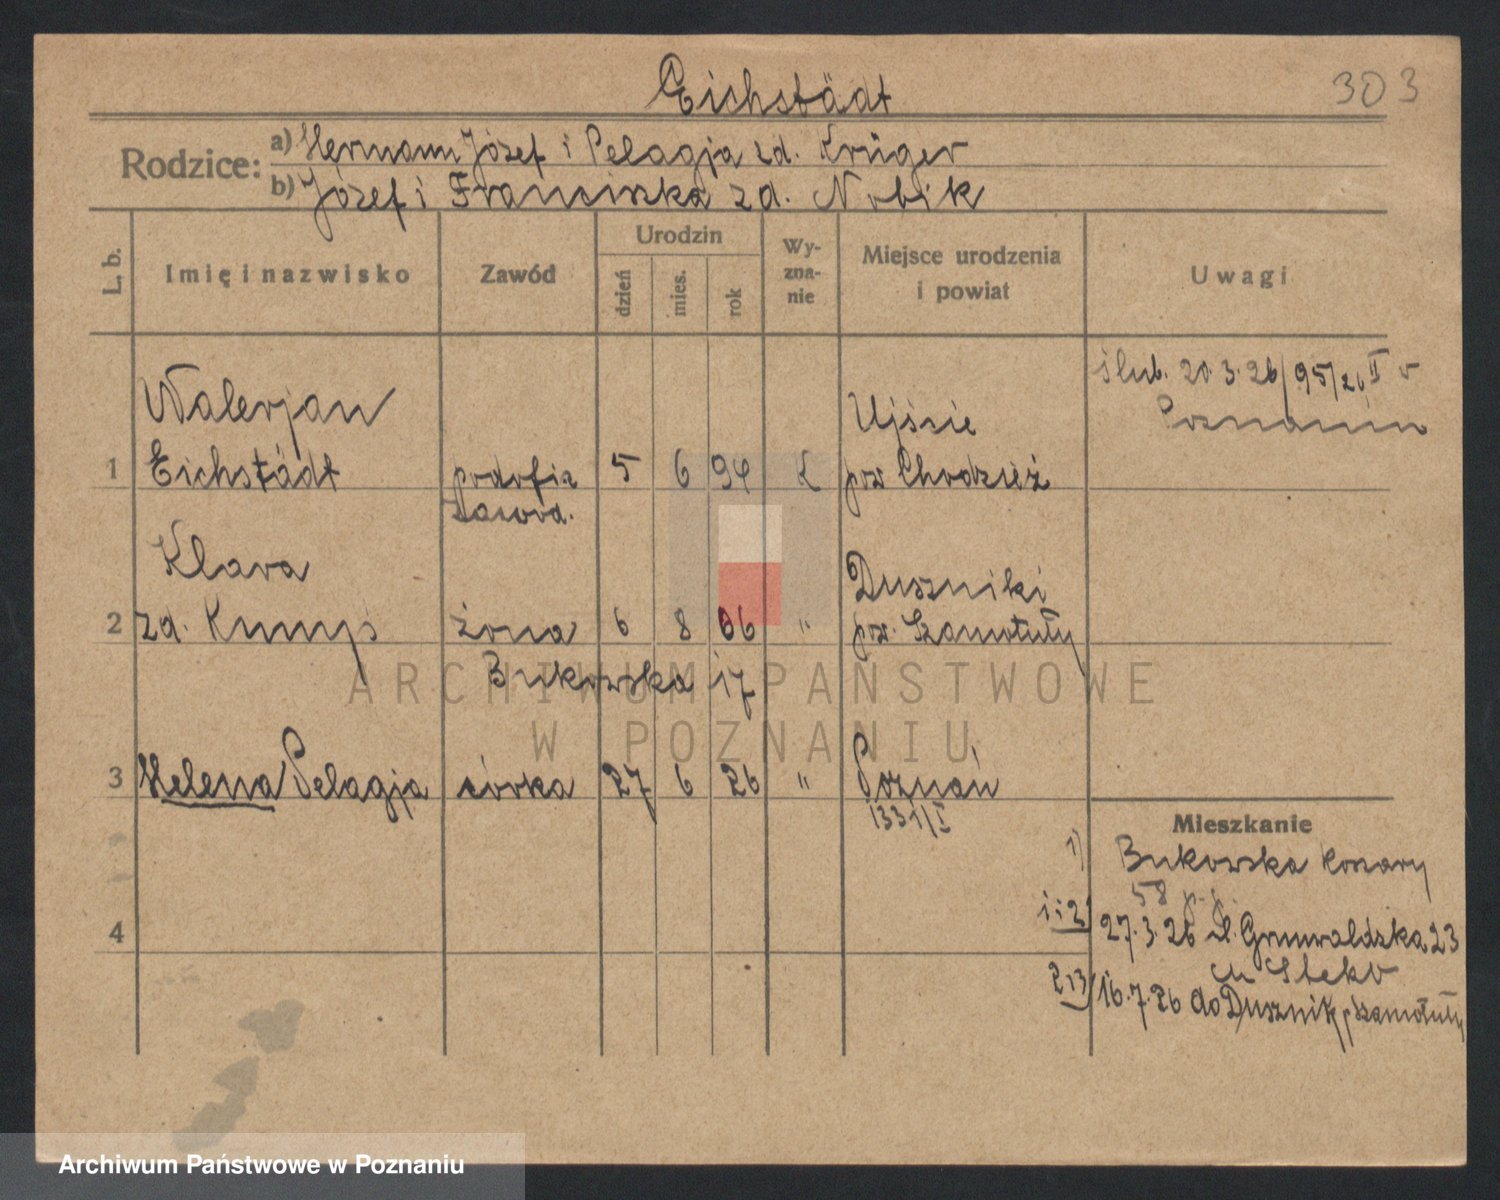 Eichstädt
303
Rodzice:
a) Hermann Józef i Pelagja zd. Krüger
b) Józef i Franciszka zd. Nobik
L. b.
Imię i nazwisko
Zawód
Urodzin
dzień
mies.
rok
Wy-
zna-
nie
Miejsce urodzenia
i powiat
Uwagi
ślub. 20.3.26/95/26 II v
Poznaniu
Walerjan
Ujście
1 Eichstädt podofic 5 6 94 k pow Chodzież
zawod.
Klara
Duszniki
2 zd. żona 6 8 06 " pow. Szamotuły
Bukowska 17
3 Helena Pelagja córka 27 6 26 " Poznań
1331/I
4
Mieszkanie
1) Bukowska koszary
58 p.p.
1 i 2) 27.3.26 Grunwaldzka 23
2 i 3) 16.7.26 do Dusznik p Szamotuły
ARCHIWUM PAŃSTWOWE
W POZNANIU
Archiwum Państwowe w Poznaniu